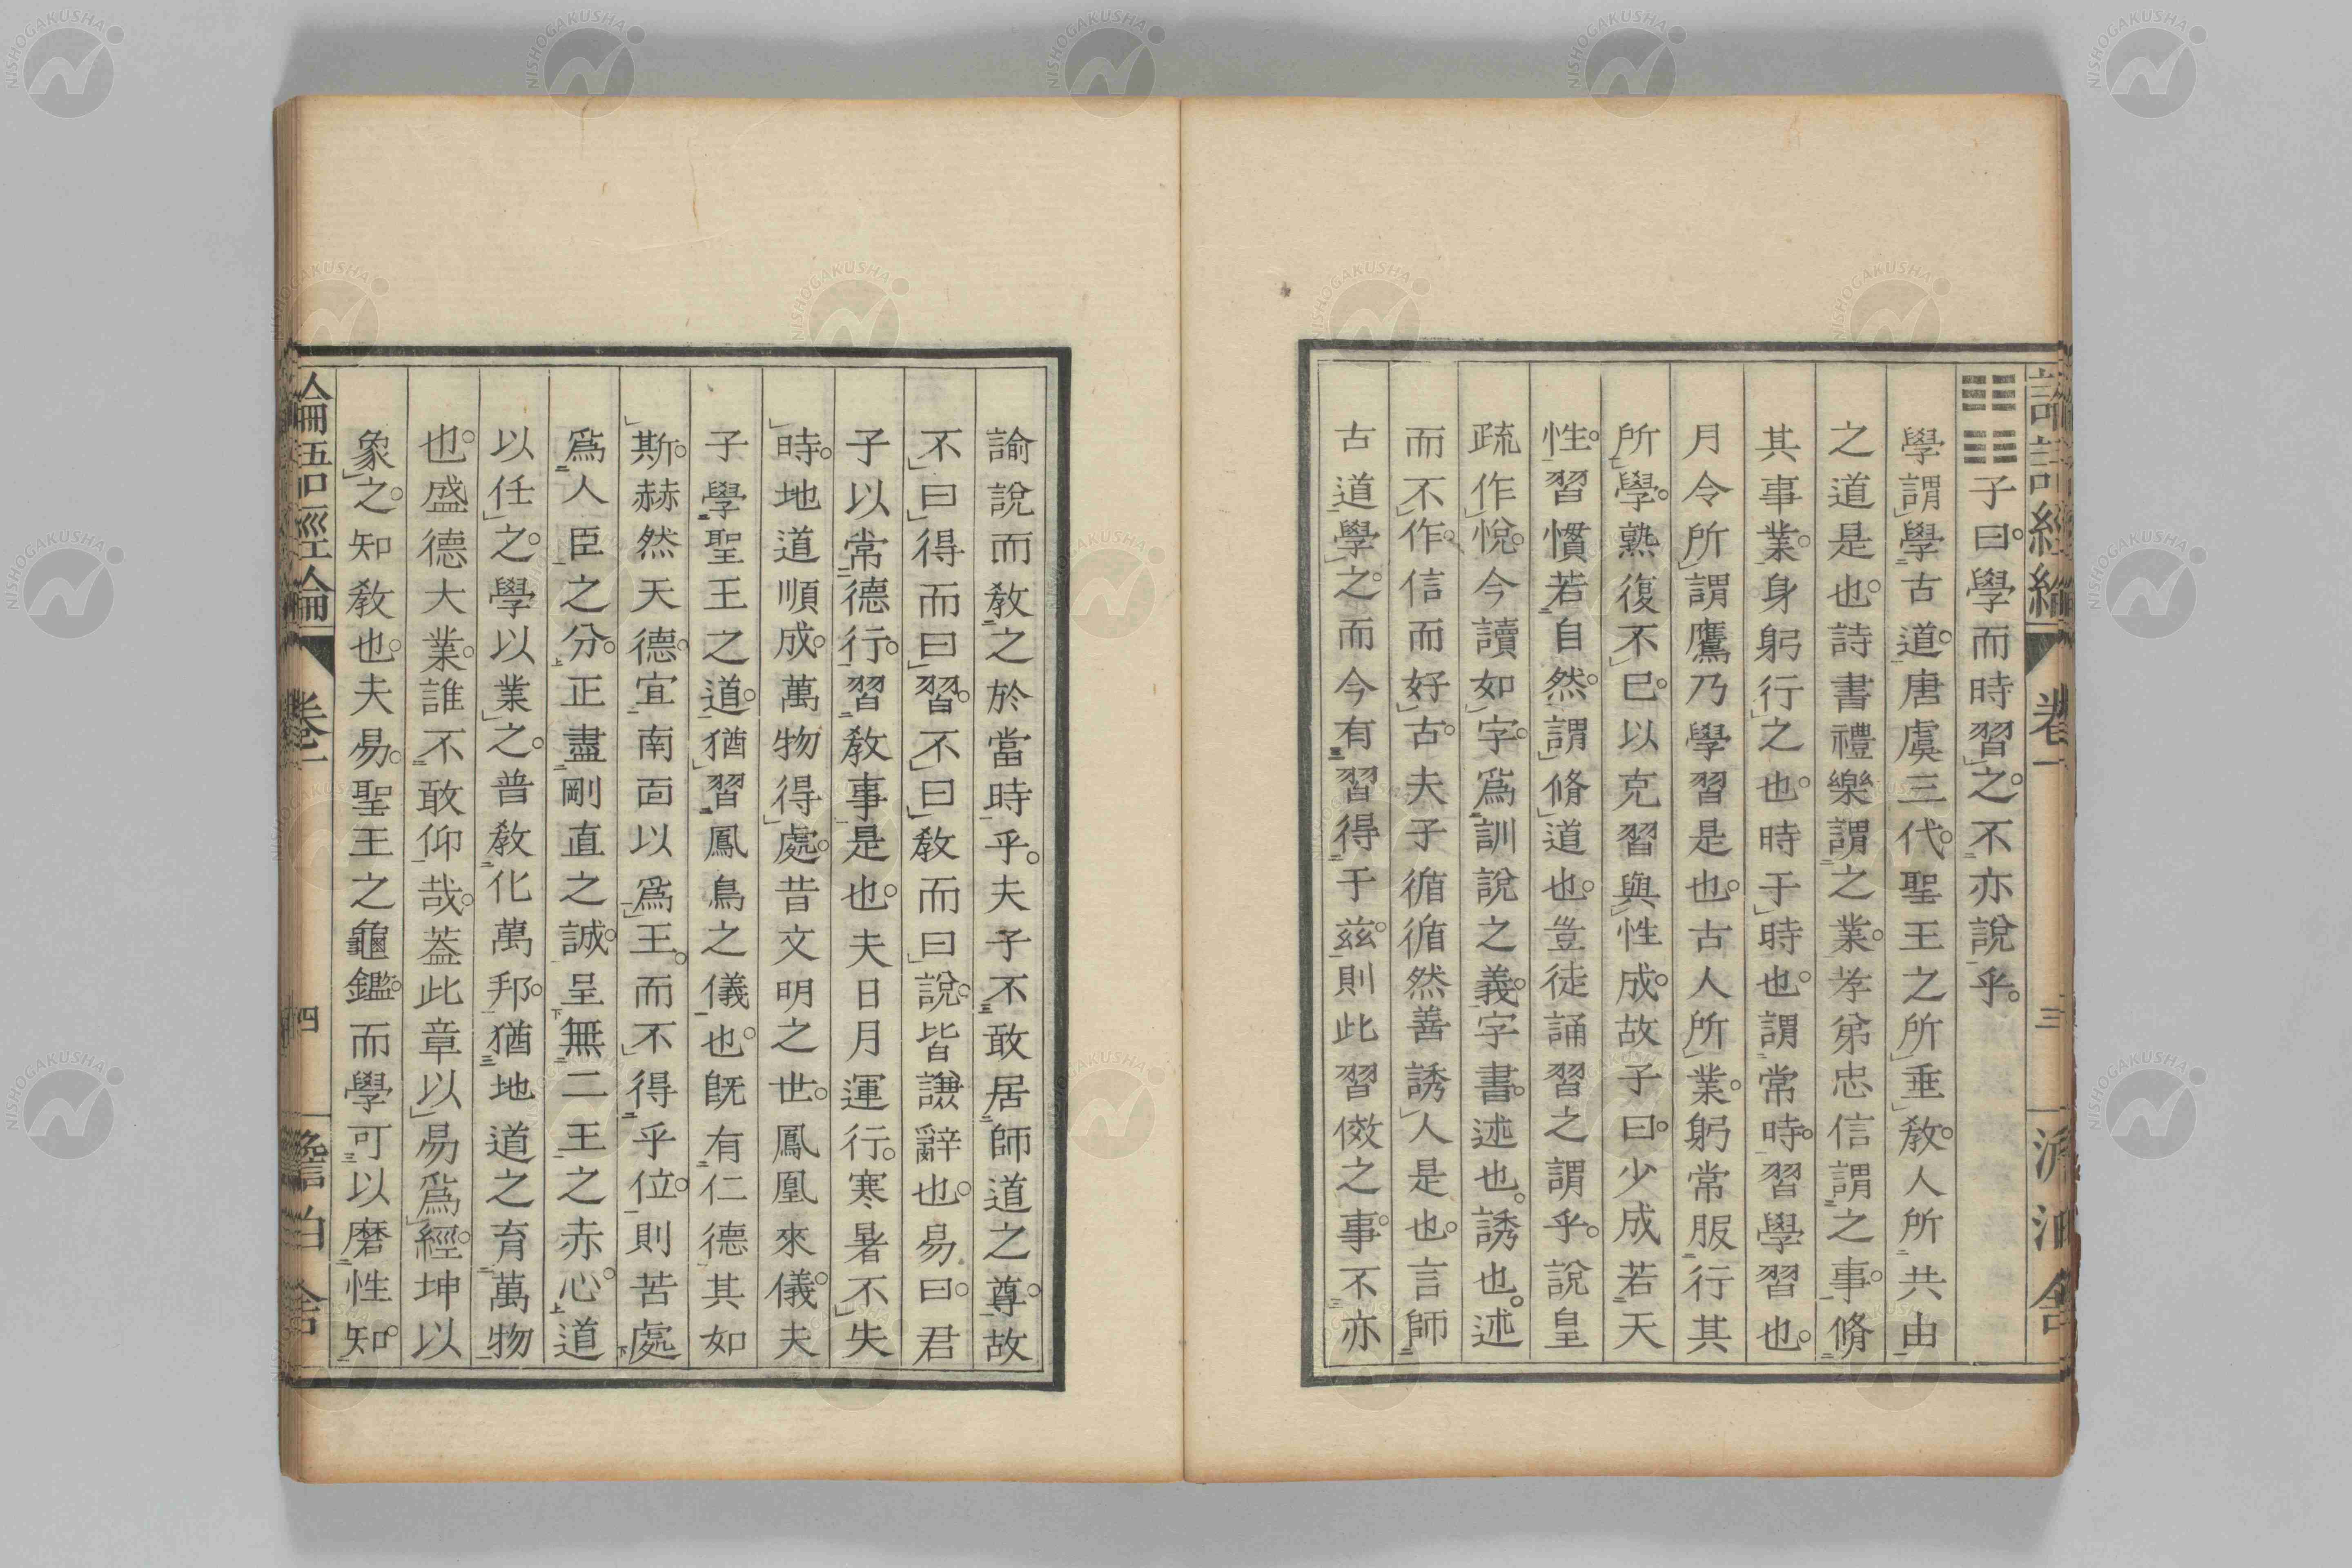 論語經綸 卷一 三
䷁子曰。學而時習之。不亦說乎。
學謂學古道。唐虞三代。聖王之所垂教。人所共由
之道是也。詩書禮樂謂之業。孝弟忠信謂之事。脩
其事業。身躬行之也。時于時也。謂常時。習學習也。
月令所謂鷹乃學習是也。古人所業。躬常服行其
所學。熟復不已。以克習與性成。故子曰。少成若天
性。習慣若自然。謂脩道也。豈徒誦習之謂乎。說皇
疏作悅。今讀如字。爲訓說之義。字書。述也。誘也。述
而不作。信而好古。夫子循循然善誘人是也。言師
古道學之。而今有習得于茲。則此習傚之事。不亦
諭說而教之於當時乎。夫子不敢居師道之尊。故
不曰得而曰習。不曰教而曰說。皆謙辭也。易曰。君
子以常德行。習教事。是也。夫日月運行。寒暑不失
時。地道順成。萬物得處。昔文明之世。鳳凰來儀。夫
子學聖王之道。猶習鳳鳥之儀也。既有仁德其如
斯。赫然天德。宜南面以爲王。而不得乎位。則苦處
爲人臣之分。正盡剛直之誠。呈無二王之赤心。道
以任之。學以業之。普教化萬邦。猶地道之育萬物
也。盛德大業。誰不敢仰哉。蓋此章以易爲經。坤以
象之。知教也。夫易。聖王之龜鑑。而學可以磨性知。
論語經綸 卷一 四
NISHOGAKUSHA